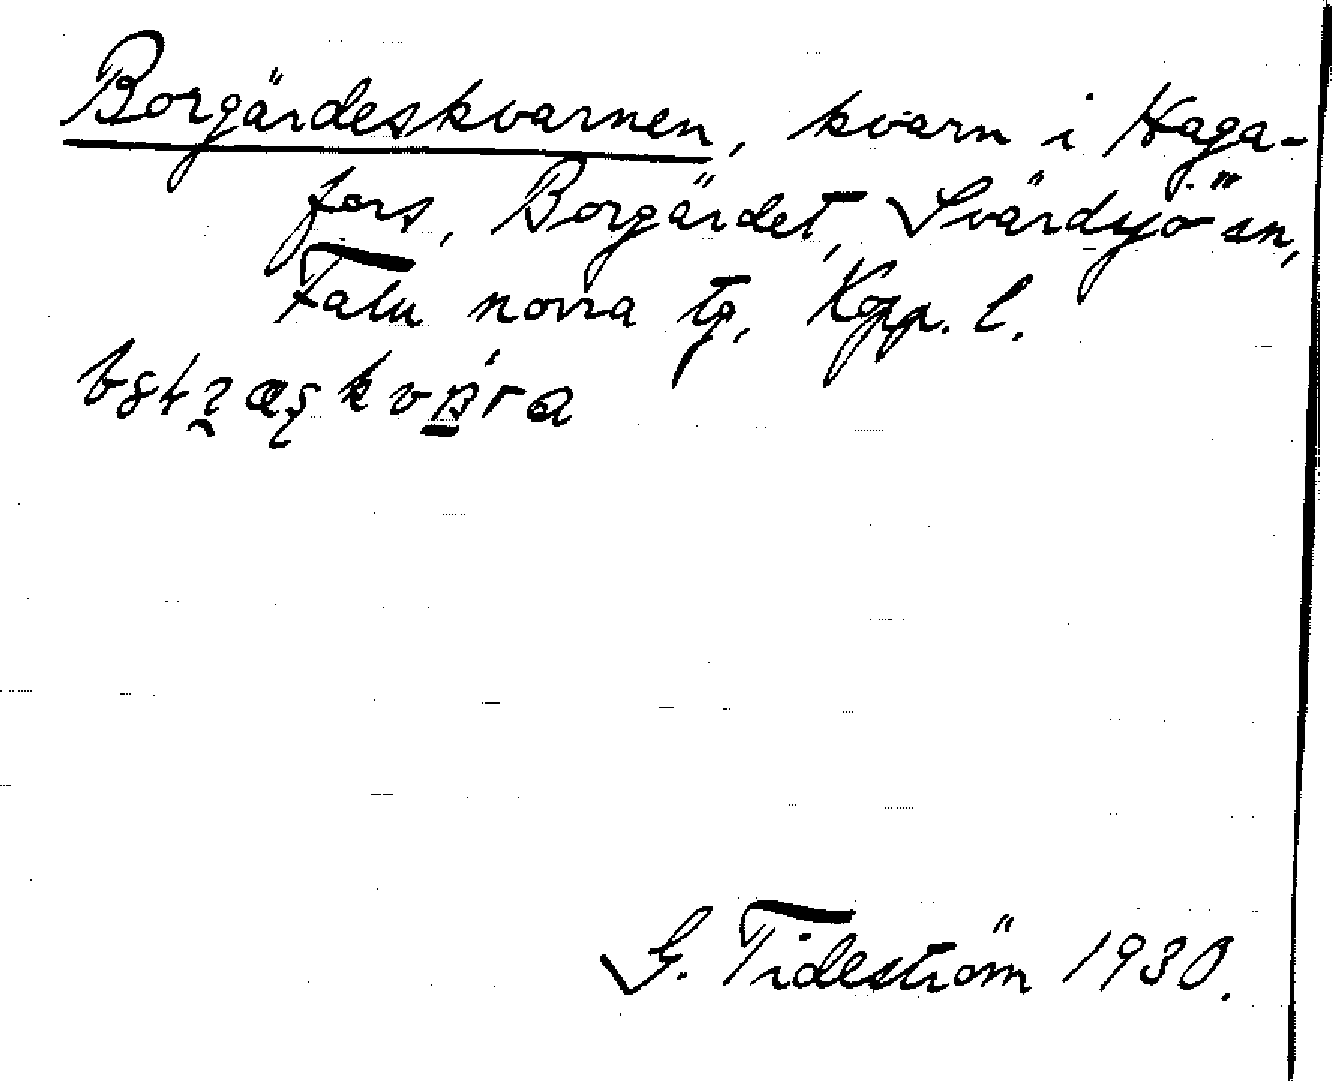 Borgärdeskvarnen, kvarn i Haga-
fors, Borgärdet, Svärdsjö sn,
Falu norra tg, Kopp. l.
G. Tideström 1930.